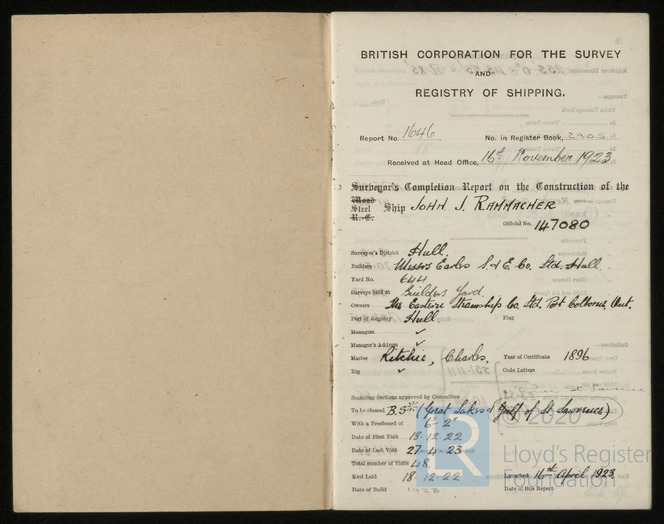 BRITISH CORPORATION FOR THE SURVEY
AND
REGISTRY OF SHIPPING.
Report No. 1646 No. in Register Book,
Received at Head Office, 16th November 1923
Surveyor's Completion Report on the Construction of the
Wood
Steel Ship JOHN J. RAMMACHER
R.-C.
Official No. 147080
Surveyor's District Hull.
Builders Messrs Earles S. & E. Co. Ltd. Hull
Yard No. 644
Surveys held at Builders Yard.
Owners The Eastern Steamship Co. Ltd. Port Colborne, Ont.
Port of Registry Hull Flag
Managers ✓
Manager's Address ✓
Master Ritchie, Charles. Year of Certificate 1896
Rig ✓ Code Letters
Scantling Sections approved by Committee
To be classed B.S. (Great Lakes & Gulf of St Lawrence)
With a Freeboard of 6'-2"
Date of First Visit 18-12-22
Date of Last Visit 27-4-23
Total number of Visits 48.
Keel Laid 18-12-22 Launched 16th April 1923.
Date of Build Date of this Report
© 2020
LR
Lloyd's Register
Foundation